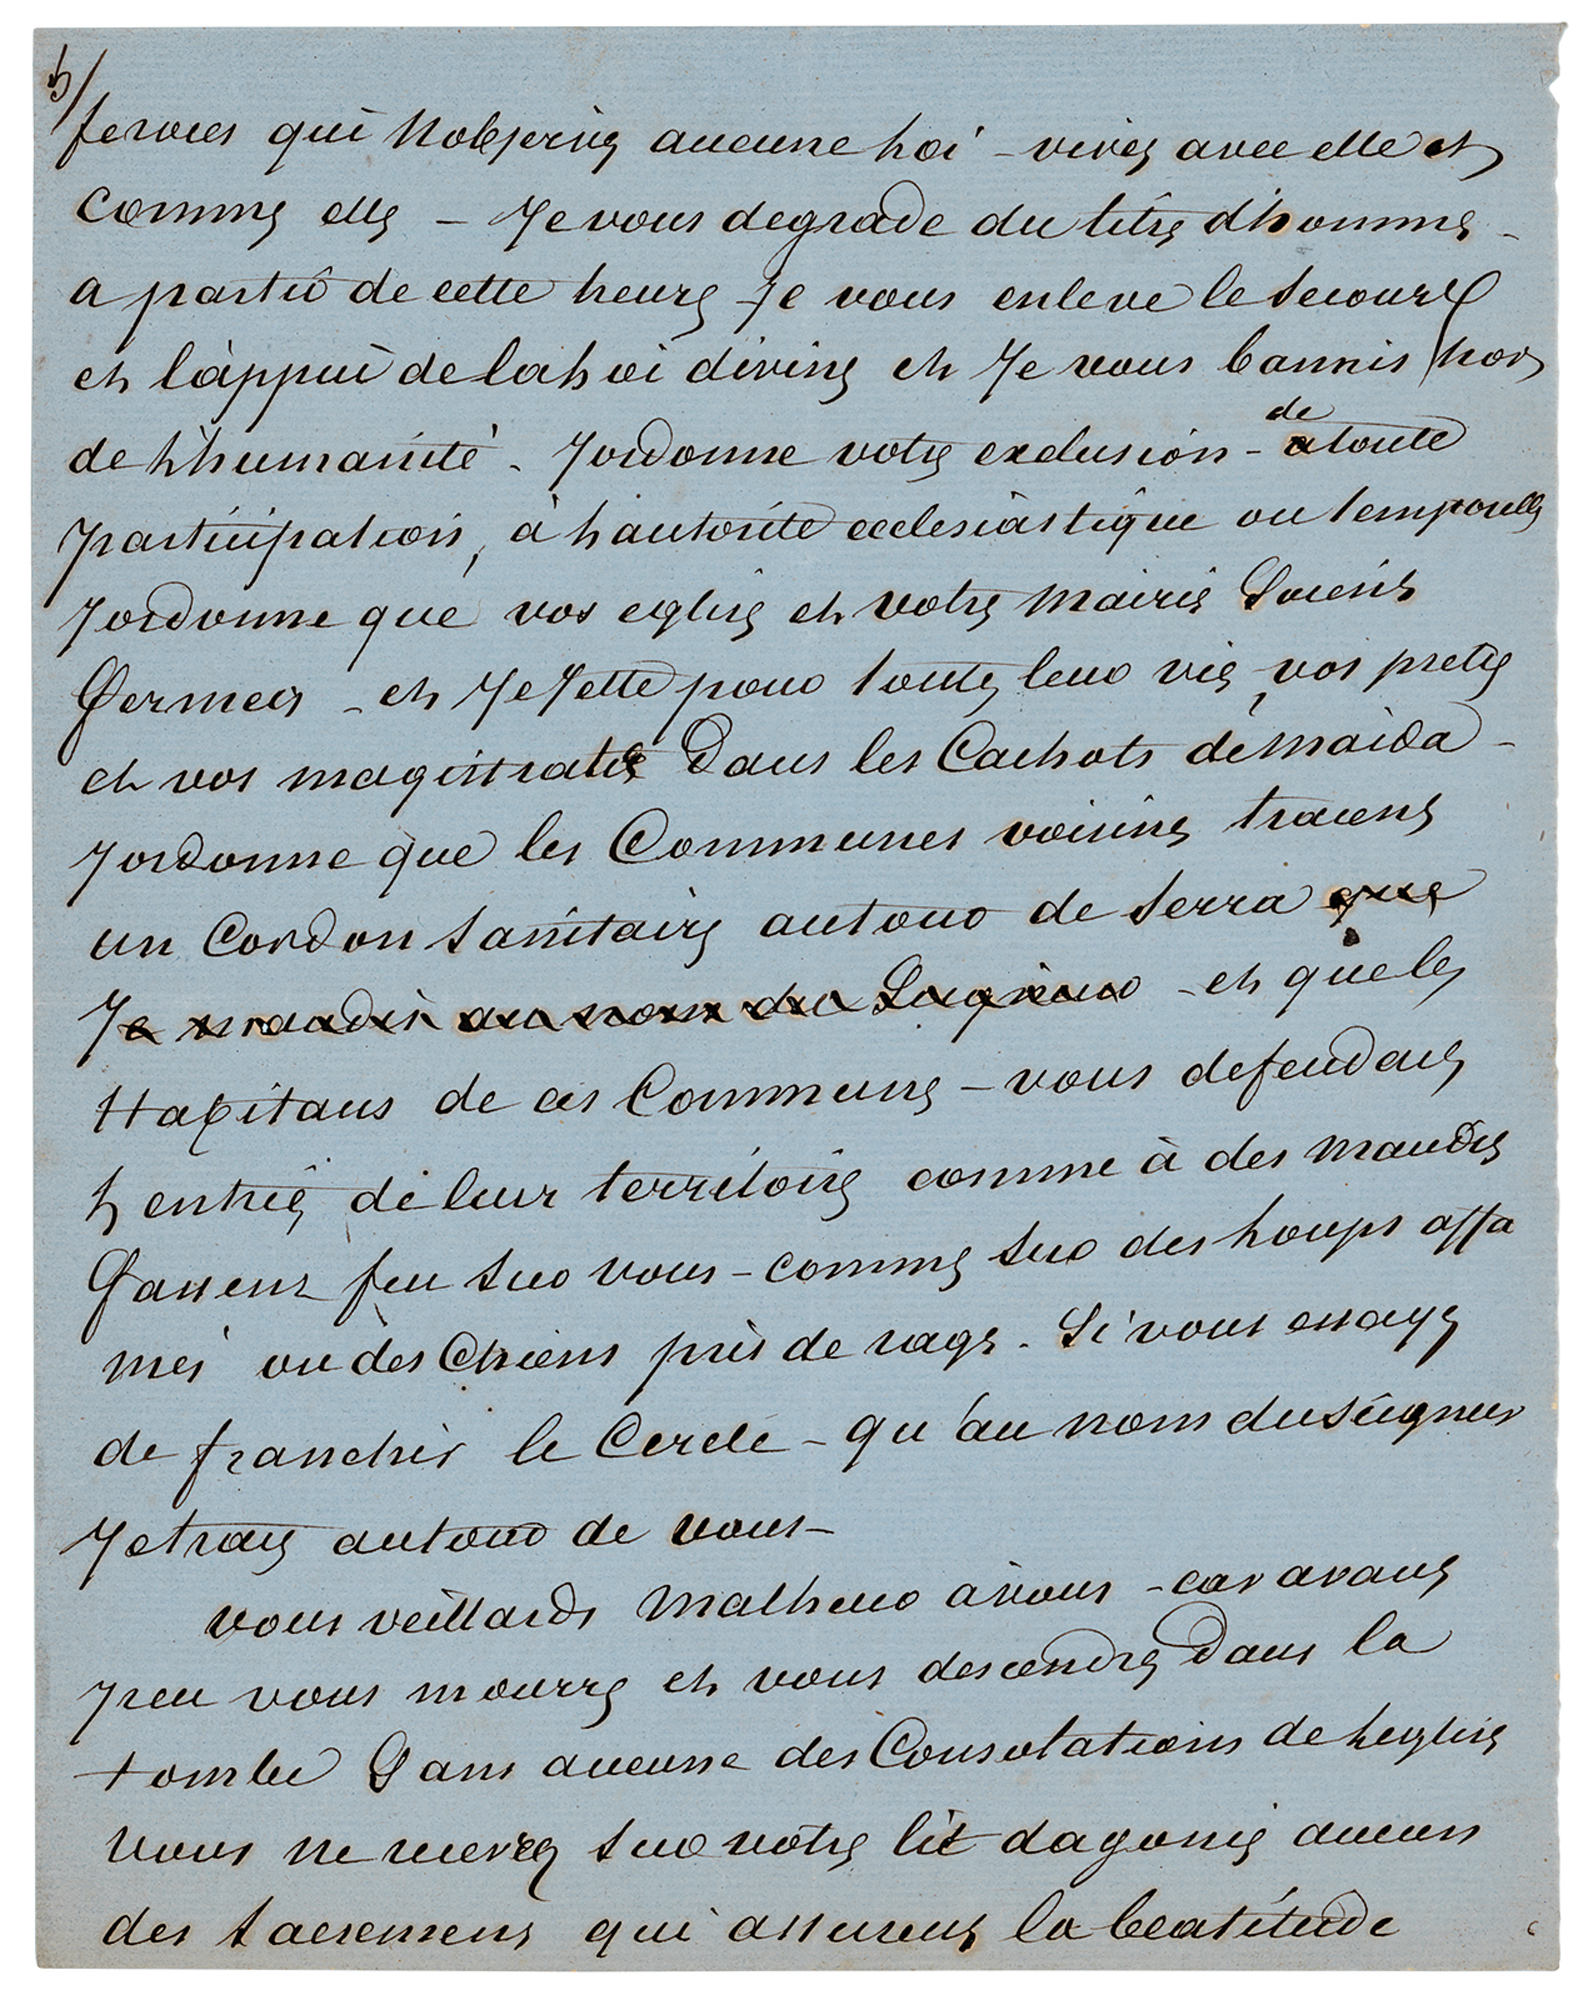 5/
feroces qui Nobserve aucune Loi – vivez avec elle et
comme elle – Je vous degrade du titre d'homme –
a partir de cette heure Je vous enleve le secours
et làppui de la Loi divine et Je vous bannis hors
de L'humanité – Jordonne votre exclusion – de toute
participation, à Lautorité ecclesiastique ou temporelle
Jordonne que vos eglise et votre Mairie Soient
fermees – et Je Jette pour toute leur vie, vos pretre
et vos magistrats Dans les Cachots de Maida –
Jordonne que les Communes voisine tracent
un Cordon Sanitaire autour de Serra que
Je maudis au nom du Seigneur – et que les
Habitans de ces Commune – vous defendant
Lentrée de leur territoire comme à des maudis
Fassent feu Sur vous – comme Sur des Loups affa
més ou des Chiens pris de rage. Si vous essaye
de franchir le Cercle – qu'au nom du Seigneur
Je trace autour de vous –
vous veillards Malheur à vous – car avant
peu vous mourre et vous descendre Dans la
tombe Sans aucune des Consolations de Leglise
Vous ne recevrez Sur votre lit dagonie aucun
des Sacremens qui assurent la beatitude